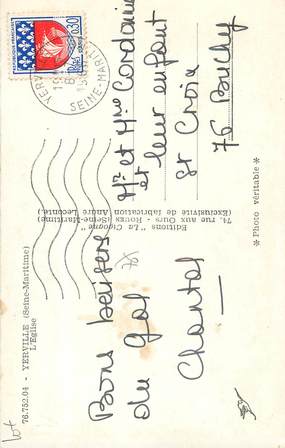 76.752.04 - YERVILLE (Seine-Maritime)
L'Eglise
Bons baisers
du Gal
Chantal
Editions "La Cigogne"
74, rue aux Ours - ROUEN (Seine-Maritime)
(Exclusivité de fabrication André Leconte)
REPUBLIQUE FRANÇAISE
0,30
YERVILLE
SEINE-MARIT
Mr et Mme Cordonnier
et leur enfant
St Croix
76 Buchy
* Photo véritable *